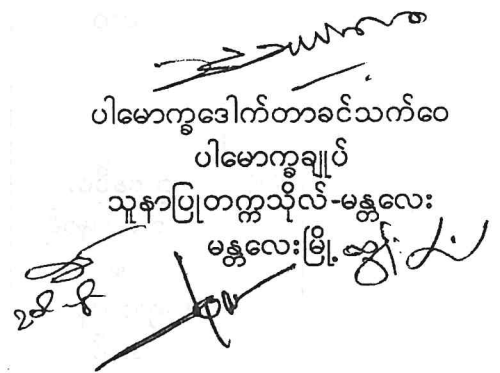 ပါမောက္ခဒေါက်တာခင်သက်ဝေ
ပါမောက္ခချုပ်
သူနာပြုတက္ကသိုလ်-မန္တလေး
မန္တလေးမြို့